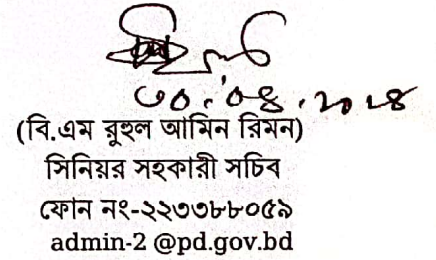 ৩০.০৪.২০২৪
(বি.এম রুহুল আমিন রিমন)
সিনিয়র সহকারী সচিব
ফোন নং-২২৩৩৮৮০৫৯
admin-2 @pd.gov.bd